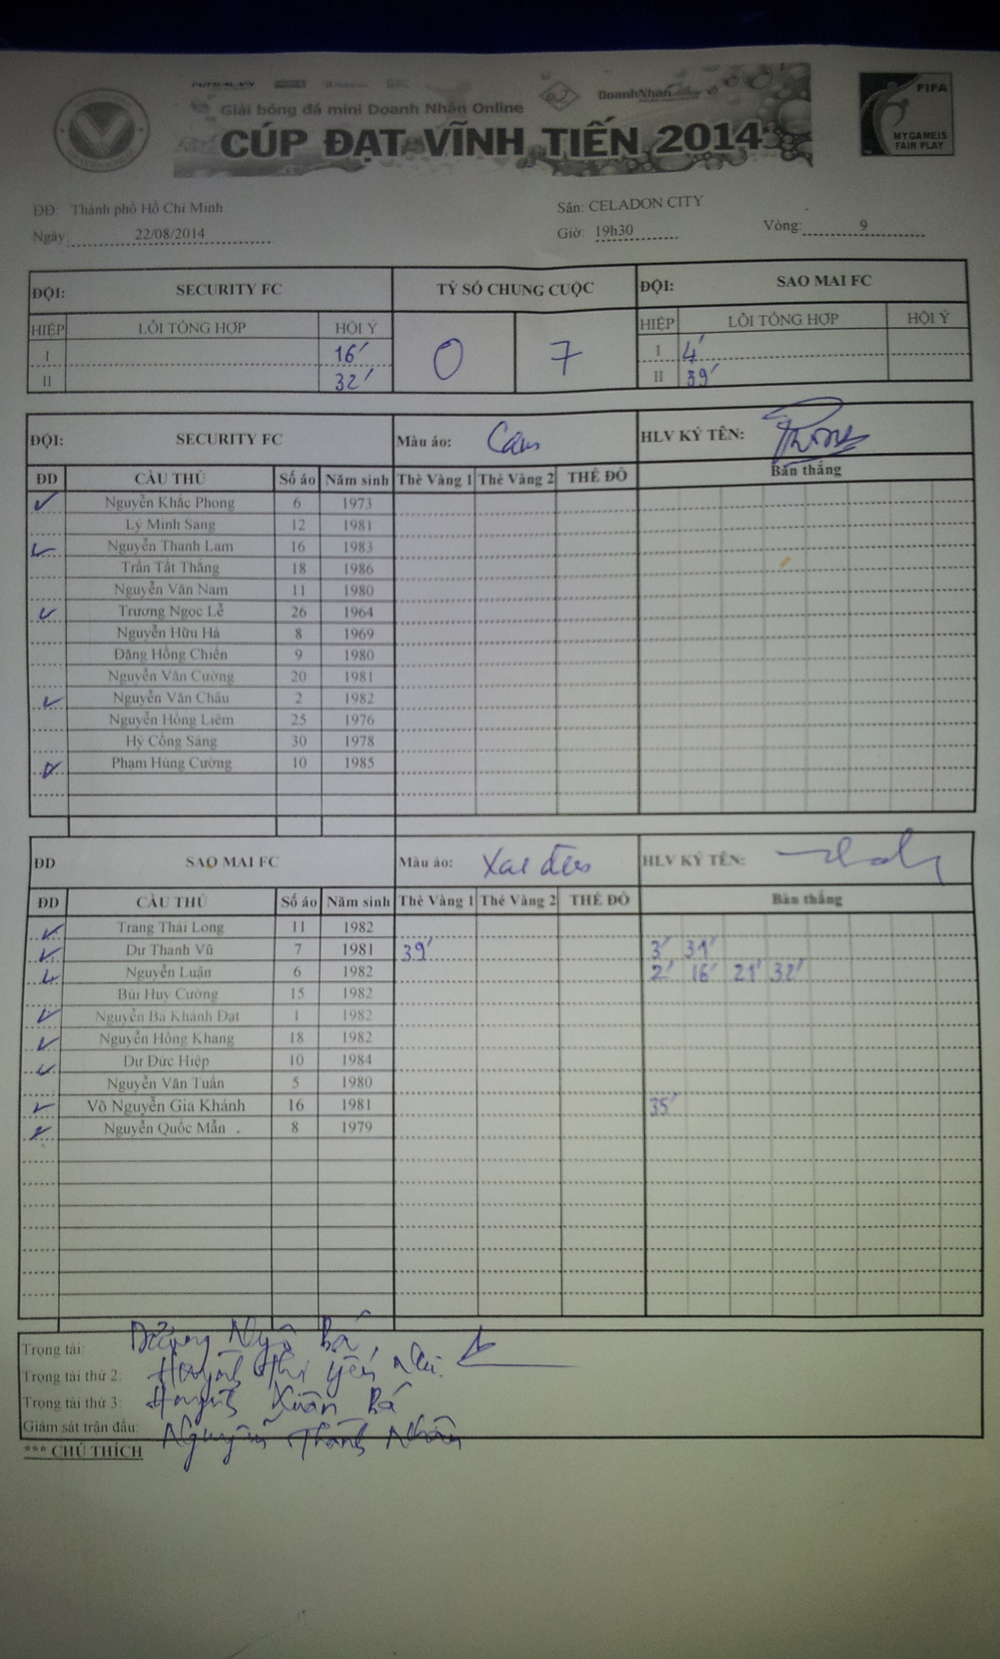 Giải bóng đá mini Doanh Nhân Online
DoanhNhân
CÚP ĐẠT VĨNH TIẾN 2014
FIFA
MYGAMEIS
FAIR PLAY
ĐĐ: Thành phố Hồ Chí Minh Sân: CELADON CITY
Ngày: 22/08/2014 Giờ: 19h30 Vòng: 9
ĐỘI: SECURITY FC TỶ SỐ CHUNG CUỘC ĐỘI: SAO MAI FC
HIỆP LỖI TỔNG HỢP HỘI Ý 0 7 HIỆP LỖI TỔNG HỢP HỘI Ý
I 16' I 4'
II 32' II 39'
ĐỘI: SECURITY FC Màu áo: Cam HLV KÝ TÊN:
ĐD CẦU THỦ Số áo Năm sinh Thẻ Vàng 1 Thẻ Vàng 2 THẺ ĐỎ Bàn thắng
Nguyễn Khắc Phong 6 1973
Lý Minh Sang 12 1981
Nguyễn Thanh Lam 16 1983
Trần Tất Thắng 18 1986
Nguyễn Văn Nam 11 1980
Trương Ngọc Lễ 26 1964
Nguyễn Hữu Hà 8 1969
Đặng Hồng Chiến 9 1980
Nguyễn Văn Cường 20 1981
Nguyễn Văn Châu 2 1982
Nguyễn Hồng Liêm 25 1976
Hỷ Công Sáng 30 1978
Phạm Hùng Cường 10 1985
ĐD SAO MAI FC Màu áo: HLV KÝ TÊN:
ĐD CẦU THỦ Số áo Năm sinh Thẻ Vàng 1 Thẻ Vàng 2 THẺ ĐỎ Bàn thắng
Trang Thái Long 11 1982
Dư Thanh Vũ 7 1981 39' 3' 31'
Nguyễn Luân 6 1982 2' 16' 21' 32'
Bùi Huy Cường 15 1982
Nguyễn Bá Khánh Đạt 1 1982
Nguyễn Hồng Khang 18 1982
Dư Đức Hiệp 10 1984
Nguyễn Văn Tuấn 5 1980
Võ Nguyễn Gia Khánh 16 1981 35'
Nguyễn Quốc Mẫn 8 1979
Trọng tài: Ngô Bá
Trọng tài thứ 2: Huỳnh Thị Yến
Trọng tài thứ 3: Huỳnh Xuân Bá
Giám sát trận đấu: Nguyễn Thành Nhân
*** CHÚ THÍCH